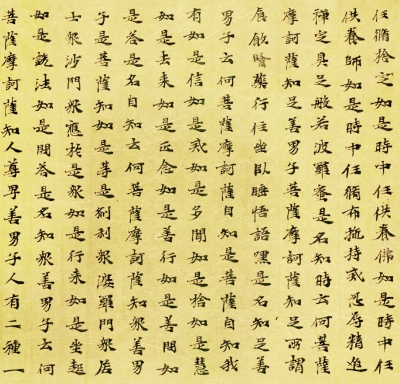 任脩捨定如是時中任供養佛如是時中任
供養師如是時中任脩布施持戒忍辱精進
禪定具足般若波羅蜜是名知時云何菩薩
摩訶薩知足善男子菩薩摩訶薩知足所謂
食飲噉藥行住坐卧睡悟語嘿是名知足善
男子云何菩薩摩訶薩自知是菩薩自知我
有如是信如是戒如是多聞如是捨如是慧
如是去来如是正念如是善行如是善問如
是答是名自知云何菩薩摩訶薩知衆善男
子是菩薩知如是等是剎利衆婆羅門衆居
士衆沙門衆應於是衆如是行来如是坐起
如是說法如是問答是名知衆善男子云何
菩薩摩訶薩知人尊卑善男子人有二種一